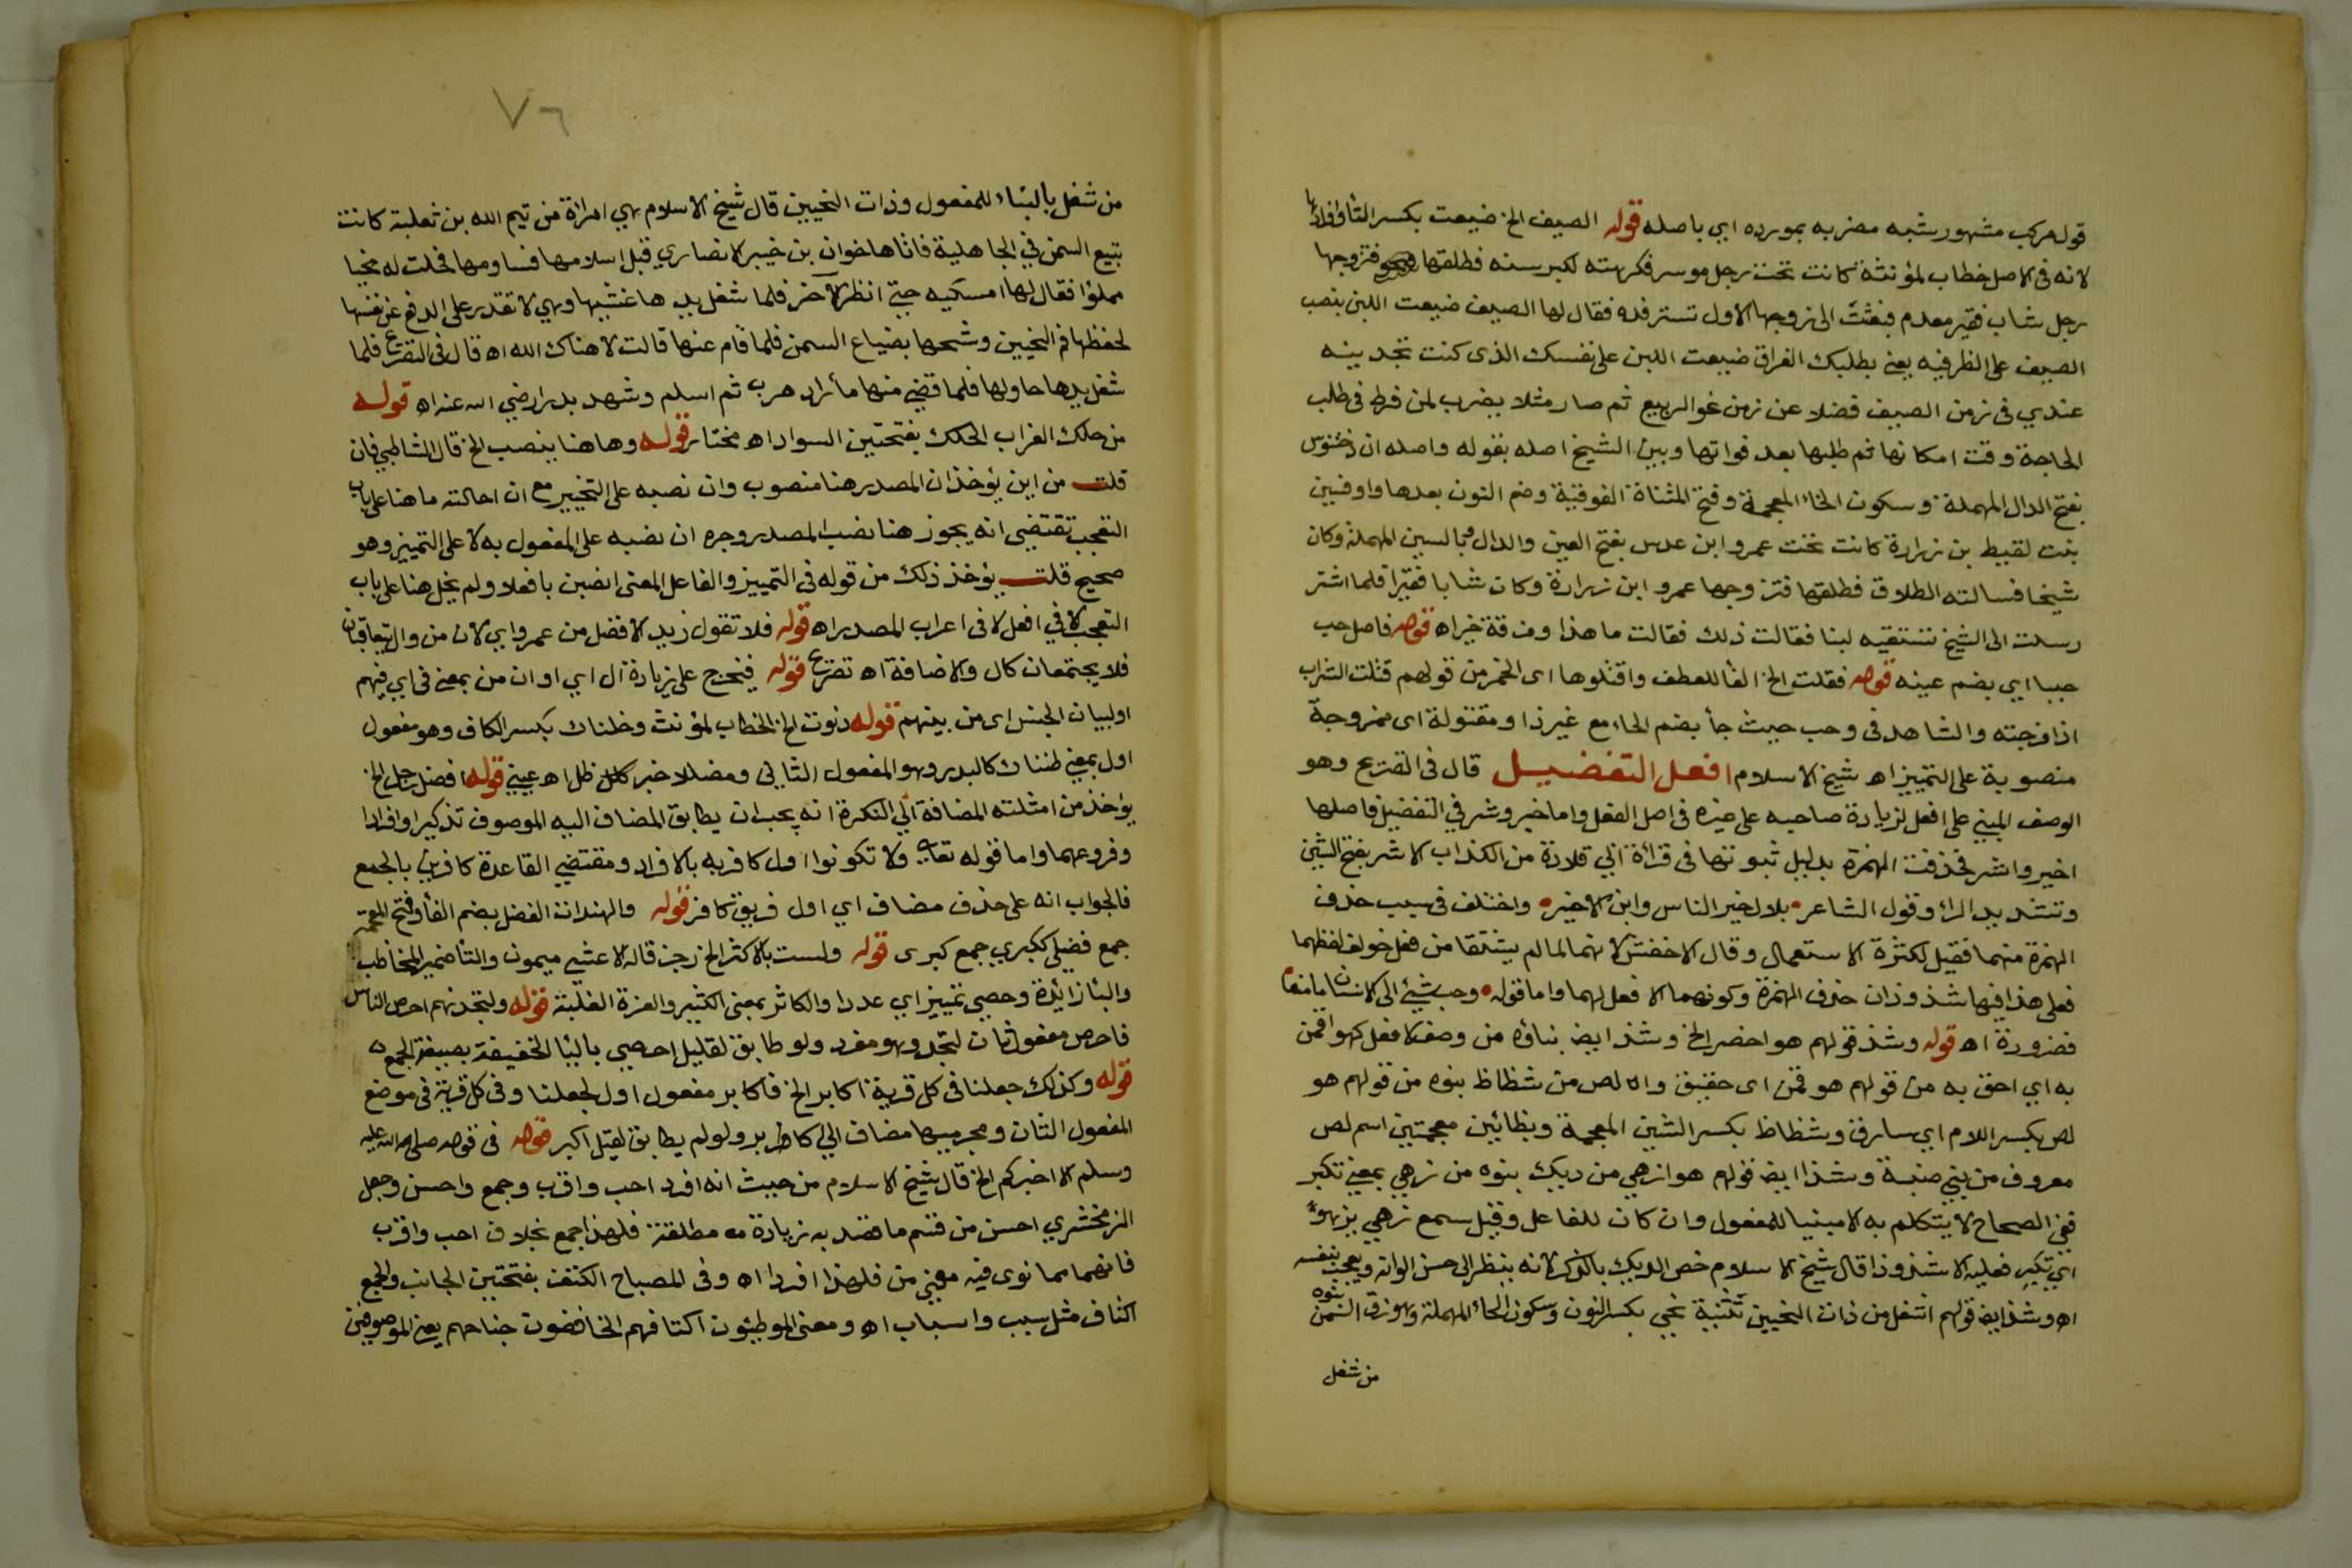 قول مركب مشهور شبه مضربه بمورده اي باصله قوله الصيف الخ ضيعت بكسر التا وافرادها
لانه في الاصل خطاب لمؤنثة كانت تحت رجل موسر فكرهته لكبر سنه فطلقها فتزوجها
رجل شاب فقير معدم فبعثت الى زوجها الاول تسترفده فقال لها الصيف ضيعت اللبن بنصب
الصيف على الظرفية يعني بطلبك الفراق ضيعت اللبن على نفسك الذى كنت تجدينه
عندي في زمن الصيف فضلا عن زمن نحو الربيع ثم صار مثلا يضرب لمن فرط في طلب
الحاجة وقت امكانها ثم طلبها بعد فواتها وبين الشيخ اصله بقوله واصله ان دختنوس
بفتح الدال المهملة وسكون الخاء المعجمة وفتح المثناة الفوقية وضم النون بعدها واو فسين
بنت لقيط بن زرارة كانت تحت عمرو ابن عدس بفتح العين والدال وبالسين المهملة وكان
شيخا فسالته الطلاق فطلقها فتزوجها عمرو ابن زرارة وكان شابا فقيرا فلما اشتر
رسلت الى الشيخ تستقيه لبنا فقالت ذلك فقالت ما هذا ومذقة خير اه قوله فاصل حب
حببا اي بضم عينه قوله فقلت الخ الفا للعطف واقتلوها اى الخمر من قولهم قتلت الشراب
اذا مزجته والشاهد في وحب حيث جأ بضم الحاء مع غير ذا ومقتولة اى ممزوجة
منصوبة على التمييز اه شيخ الاسلام افعل التفضيل قال في التصريح وهو
الوصف المبني على افعل لزيادة صاحبه على غيره في اصل الفعل واما خير وشر في التفضيل فاصلها
اخير واشر فحذفت الهمزة بدليل ثبوتها في قرأة ابي قلابة من الكذاب الاشر بفتح الشين
وتشديد الراء وقول الشاعر بلال خير الناس وابن الاخير واختلف في سبب حذف
الهمزة منهما فقيل لكثرة الاستعمال وقال الاخفش لانهما لما لم يشتقا من فعل خولف لفظهما
فعلى هذا فيها شذوذان حذف الهمزة وكونهما لا فعل لهما واما قوله وحب شيئ الى الانسان ما منعا
فضرورة اه قوله وشذ قولهم هو اخصر الخ وشذ ايض بناؤه من وصف لا فعل كهو اقمن
به اي احق به من قولهم هو قمن اى حقيق و الص من شظاظ بنوه من قولهم هو
لص بكسر اللام اي سارق وشظاظ بكسر الشين المعجمة وبظائين معجمتين اسم لص
معروف من بني ضبة وشذا ايض قولهم هو ازهى من ديك بنوه من زهي بمعني تكبر
ففي الصحاح لا يتكلم به الا مبنيا للمفعول وان كان للفاعل وقيل سمع زهي يزهو
اي تكبر فعليه لا شذوذ اقال شيخ الاسلام خص الديك بالذكر لانه ينظر الى حسن الوانه ويعجب بنفسه
اه وشذ ايض قولهم اشغل من ذات النحيين تثنية نحي بكسر النون وسكون الحاء المهملة وهو زق السمن بنوه
من شغل
٧٦
من شغل بالبناء للمفعول وذات النحيين قال شيخ الاسلام هي امراة من تيم الله بن ثعلبة كانت
تبيع السمن في الجاهلية فاتاها خوان بن خيبر الانصاري قبل اسلامها فساومها فحلت له نحيا
مملوا فقال لها امسكيه حتي انظر الاخر فلما شغل يديها غشيها وهي لا تقدر على الدفع عن نفسها
لحفظها فم النحيين وشحها بضياع السمن فلما قام عنها قالت لا هناك الله اه قال في التصريح فلما
شغل يديها حاولها فلما قضى منها ما أراد هرب ثم اسلم وشهد بدرا رضي الله عنه اه قوله
من حلك الغراب الحلك بفتحتين السواد اه مختار قوله وهاهنا ينصب الخ قال الشاطبي فان
قلت من اين يؤخذ ان المصدر هنا منصوب وان نصبه على التخيير مع ان احالته ما هنا على باب
التعجب تقتضي انه يجوز هنا نصب المصدر وجره ان نصبه على المفعول به لا على التمييز وهو
صحيح قلت يؤخذ ذلك من قوله في التمييز والفاعل المعنى انصبن بافعلا ولم يحل هنا على باب
التعجب الا في افعل لا في اعراب المصدر اه قوله فلا تقول زيد الافضل من عمرو اي لان من وال يتعاقبان
فلا يجتمعان كال والاضافة اه تصريح قوله فيخرج على زيادة ال اي او ان من بمعني في اي فيهم
او لبيان الجنس اى من بينهم قوله دنوت الخ الخطاب لمؤنث وخلناك بكسر الكاف وهو مفعول
اول بمعني ظنناك كالبدر وهو المفعول الثاني ومضللا خبر ظل اه عيني قوله افضل رجل الخ
يؤخذ من امثلته المضافة الي النكرة انه يجب ان يطابق المضاف اليه الموصوف تذكيرا وافرادا
وفروعهما واما قوله تعالى ولا تكونوا اول كافر به بالافراد ومقتضي القاعدة كافرين بالجمع
فالجواب انه على حذف مضاف اي اول فريق كافر قوله والهندات الفضل بضم الفأ وفتح المعجمة
جمع فضلي ككبري جمع كبرى قوله ولست بالاكثر الخ رجز قاله الاعشي ميمون والتأ ضمير المخاطب
والبا زائدة وحصى تمييز اي عددا والكاثر بمعنى الكثير والعزة الغلبة قوله ولتجدنهم احرص الناس
فاحرص مفعول ثان لتجد وهو مفرد ولو طابق لقيل احرصي باليا الخفيفة بصيغة الجمع
قوله وكذلك جعلنا في كل قرية اكابر الخ فاكابر مفعول اول لجعلنا وفي كل قرية في موضع
المفعول الثان ومجرميها مضاف الي اكابر ولو لم يطابق لقيل اكبر قوله في قوله صلى الله عليه
وسلم الا اخبركم الخ قال شيخ الاسلام من حيث انه افرد احب واقرب وجمع واحسن وجعل
الزمخشري احسن من قسم ما قصد به زيادة مطلقة فلهذا جمع بخلاف احب واقرب
فانهما مما نوى فيه معني من فلهذا افردا اه وفي المصباح الكنف بفتحتين الجانب والجمع
اكناف مثل سبب واسباب اه ومعنى الموطئون اكنافهم الخافضون جناحهم يعني الموصوفين